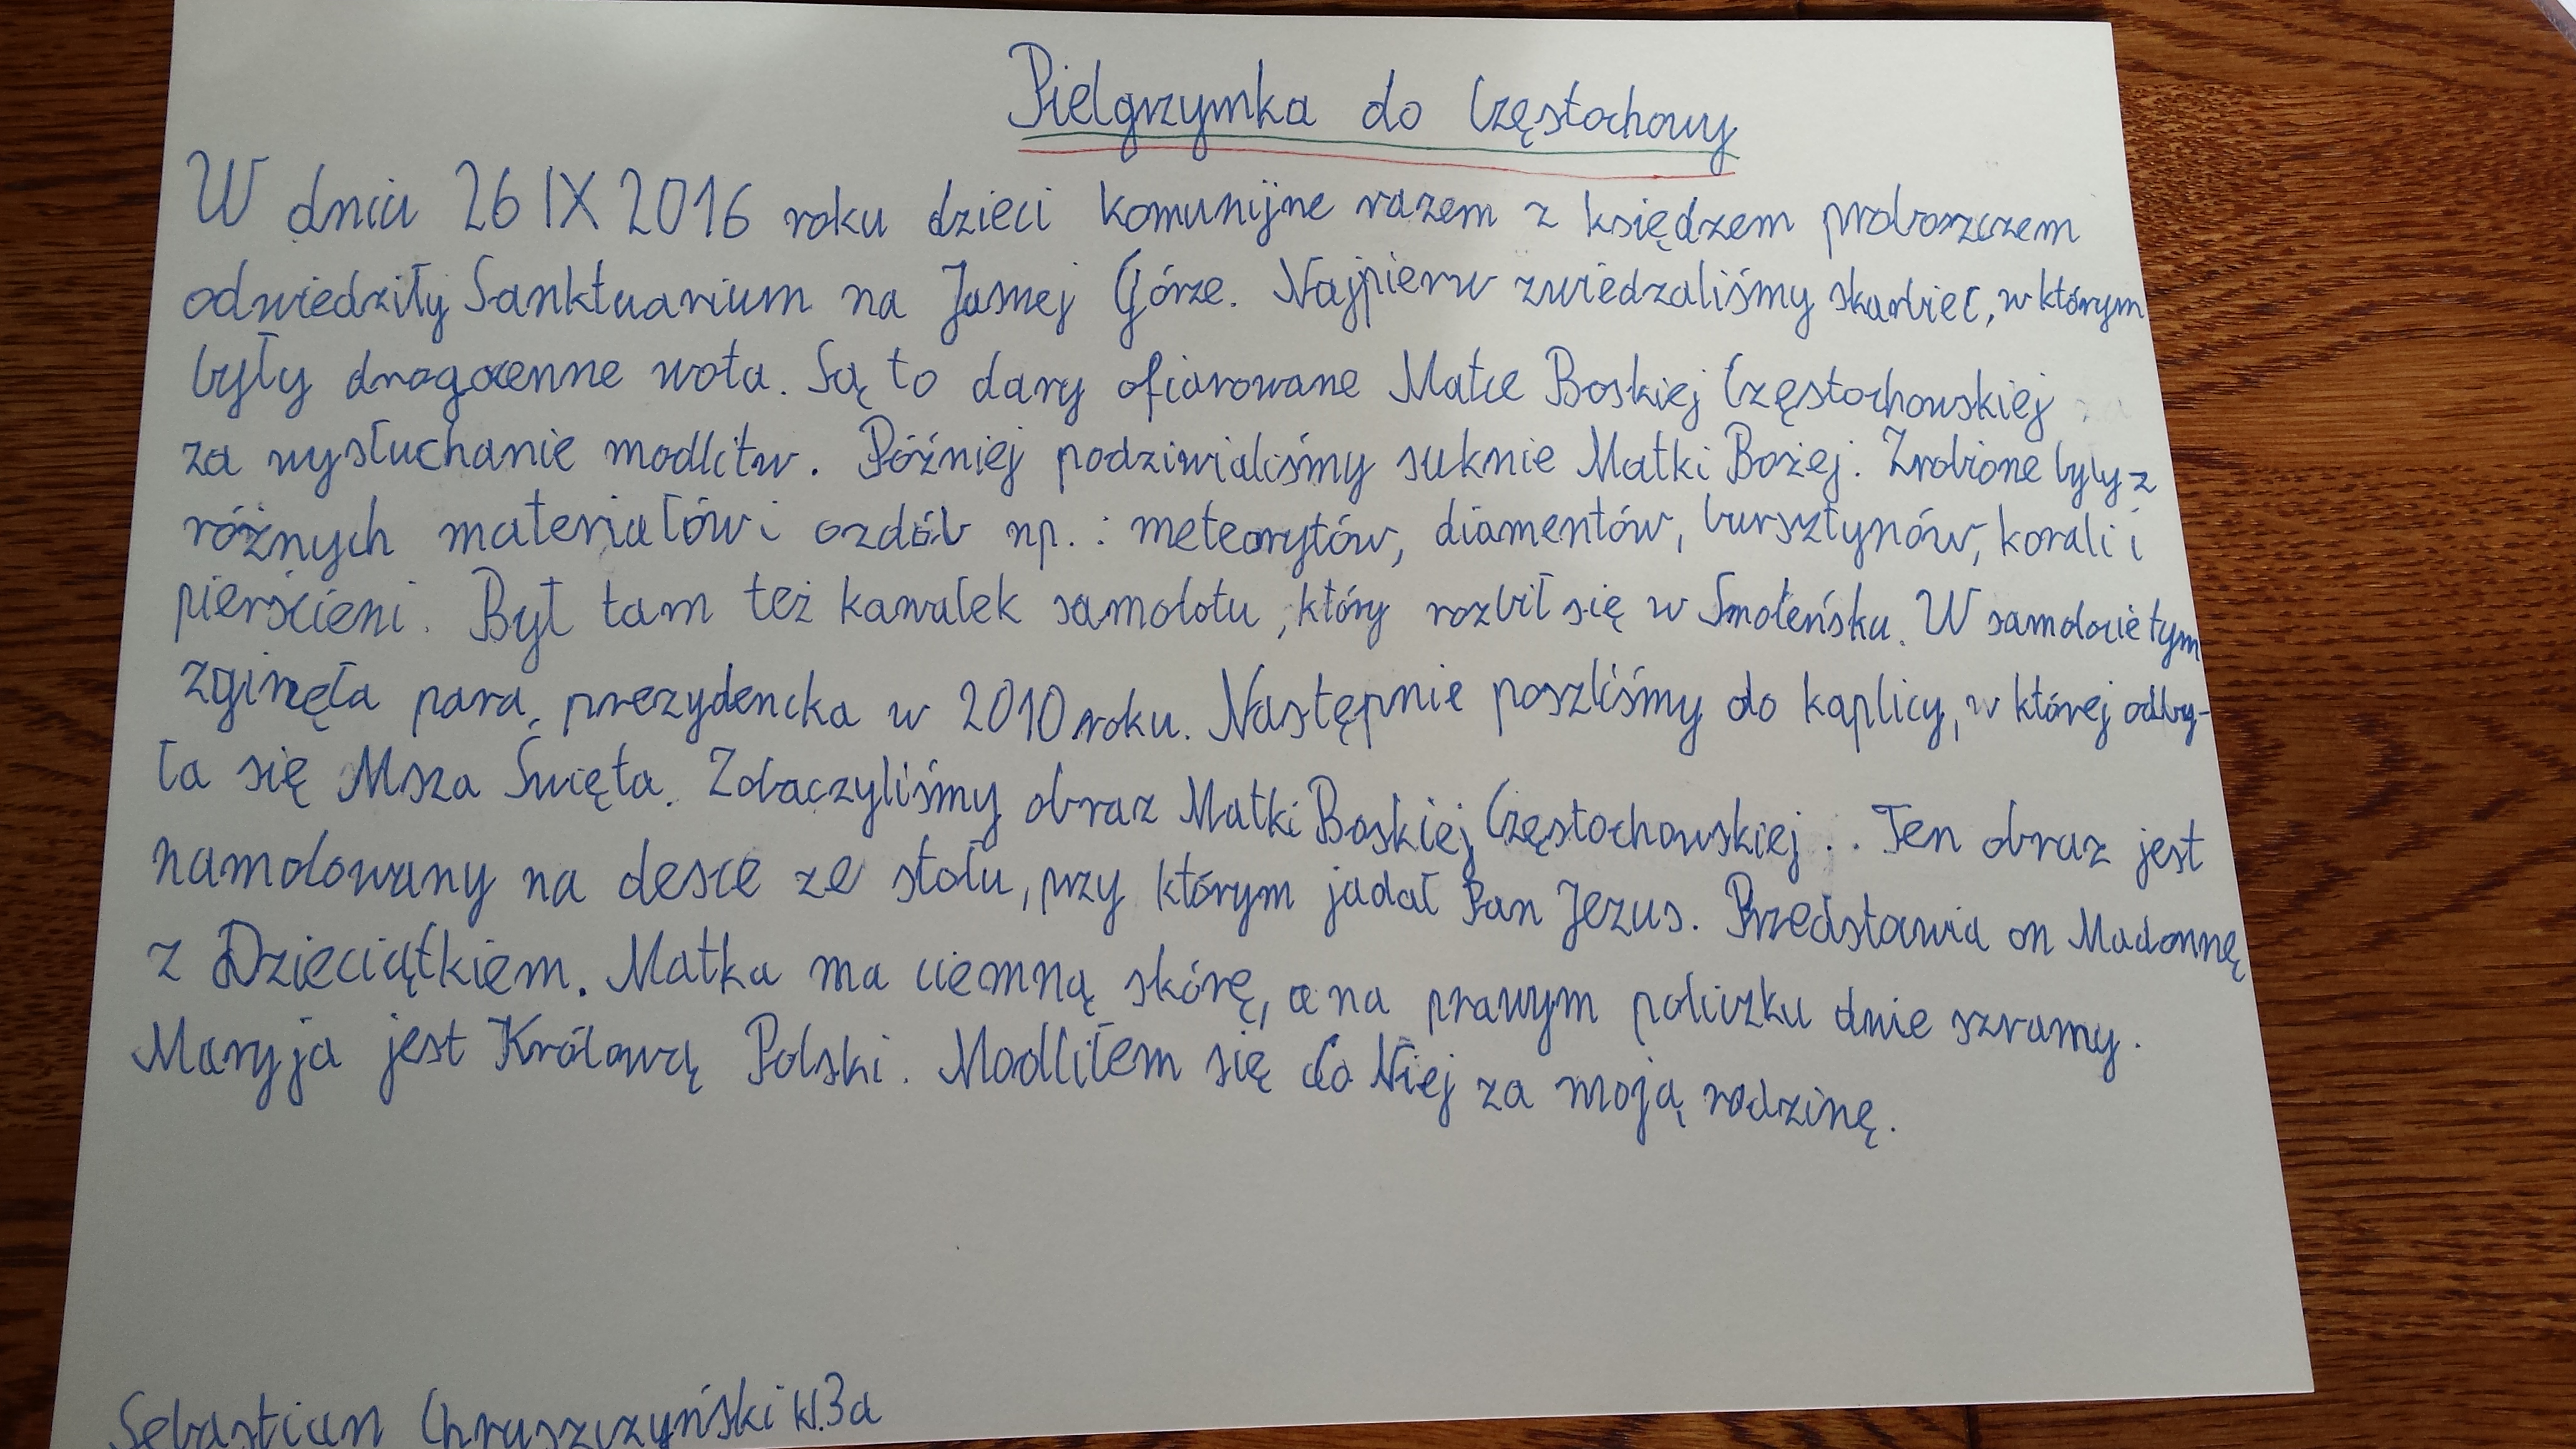 Pielgrzymka do Częstochowy
W dniu 26 IX 2016 roku dzieci komunijne razem z księdzem proboszczem
odwiedziły Sanktuarium na Jasnej Górze. Najpierw zwiedzaliśmy skarbiec, w którym
były drogocenne wota. Są to dary ofiarowane Matce Boskiej Częstochowskiej
za wysłuchanie modlitw. Później podziwialiśmy suknie Matki Bożej. Zrobione były z
różnych materiałów i ozdób np.: meteorytów, diamentów, bursztynów, korali i
pierścieni. Był tam też kawałek samolotu, który rozbił się w Smoleńsku. W samolocie tym
zginęła para prezydencka w 2010 roku. Następnie poszliśmy do kaplicy, w której odby-
ła się Msza Święta. Zobaczyliśmy obraz Matki Boskiej Częstochowskiej.. Ten obraz jest
namalowany na desce ze stołu, przy którym jadał Pan Jezus. Przedstawia on Madonnę
z Dzieciątkiem. Matka ma ciemną skórę, a na prawym policzku dwie szramy.
Maryja jest Królową Polski. Modliłem się do Niej za moją rodzinę.
Sebastian Chruszczyński kl.3a